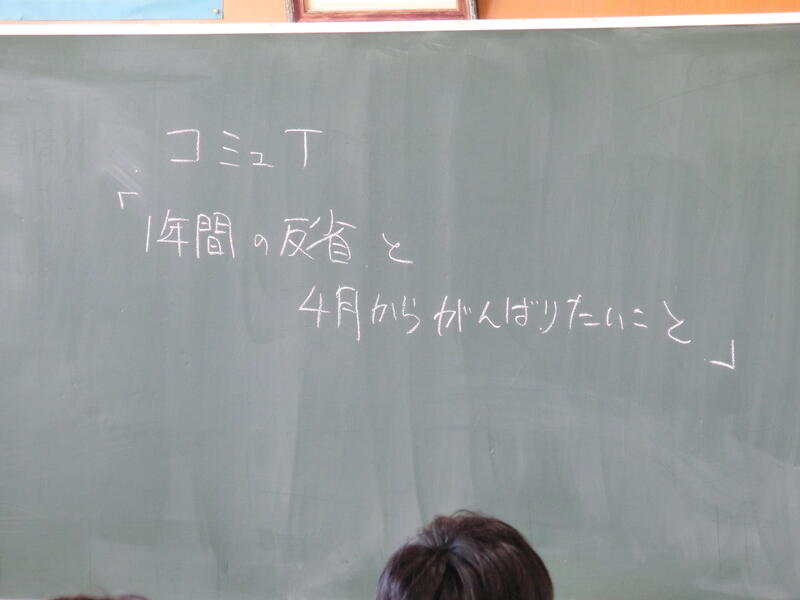 コミュT
「1年間の反省と
4月からがんばりたいこと」